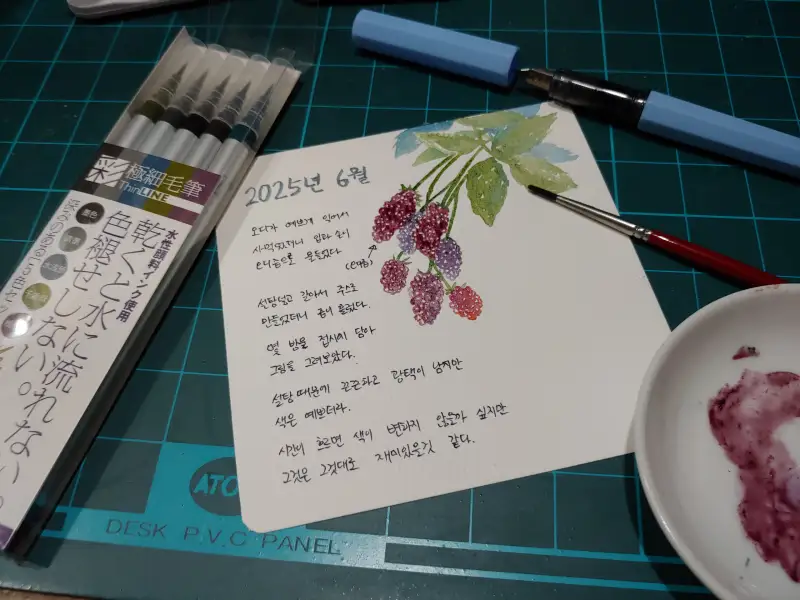 彩 極細毛筆
ThinLINE
水性顔料インク使用
乾くと水に流れない。
色褪せしない。
2025년 6월
오디가 예쁘게 익어서
사먹었더니 입과 손이
물들었다
설탕넣고 갈아서 주스로
만들었더니 흘렀다.
몇 방울 접시에 담아
그림을 그려보았다.
설탕때문에 끈끈하고 광택이 남지만
색은 예쁘더라.
시간이 흐르면 색이 변하지 않을까 싶지만
그것은 그것대로 재미있을것 같다.
DESK P.V.C PANEL